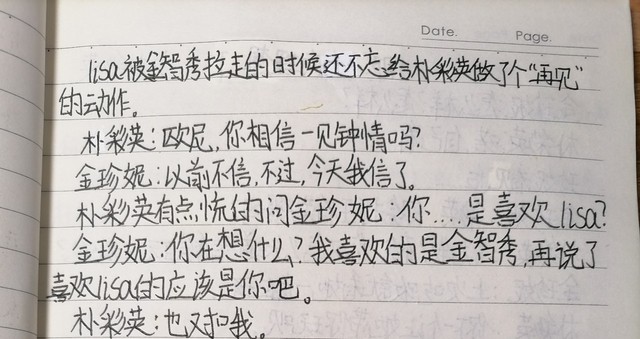 Date. Page.
lisa被金智秀拉走的时候还不忘给朴彩英做了个“再见”
的动作。
朴彩英:欧尼,你相信一见钟情吗?
金珍妮:以前不信,不过,今天我信了。
朴彩英有点慌的问金珍妮:你....是喜欢lisa?
金珍妮:你在想什么?我喜欢的是金智秀,再说了
喜欢lisa的应该是你吧。
朴彩英:也对我。